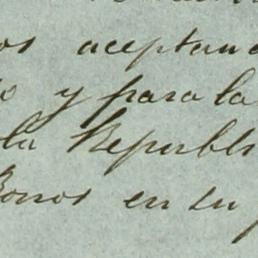 os aceptan
o y para la
la Republ
Bonos en su